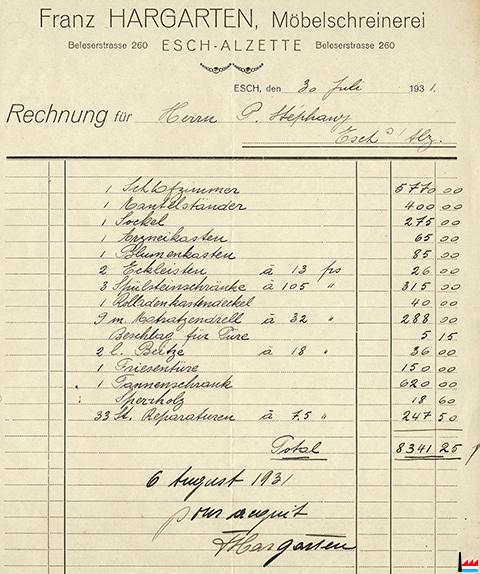 Franz HARGARTEN, Möbelschreinerei
Beleserstrasse 260 ESCH-ALZETTE Beleserstrasse 260
ESCH, den 30 Juli 1931.
Rechnung für Herrn P. Stéphany
Esch s/ Alz.
1 Schlafzimmer 5770 00
1 Mantelständer 400 00
1 Sockel 275 00
1 Arzneikasten 65 00
1 Blumenkasten 85 00
2 Eckleisten à 13 frs 26 00
3 Spülsteinschränke à 105 " 315 00
1 Rolladenkastendeckel 40 00
9 m Matratzendrell à 32 " 288 00
Beschlag für Türe 5 15
2 l. Beitze à 18 " 36 00
1 Friesentüre 150 00
1 Tannenschrank 620 00
Sperrholz 18 60
33 St. Reparaturen à 7.5 " 247 50
Total 8341 25
6 August 1931
pour acquit
FHargarten